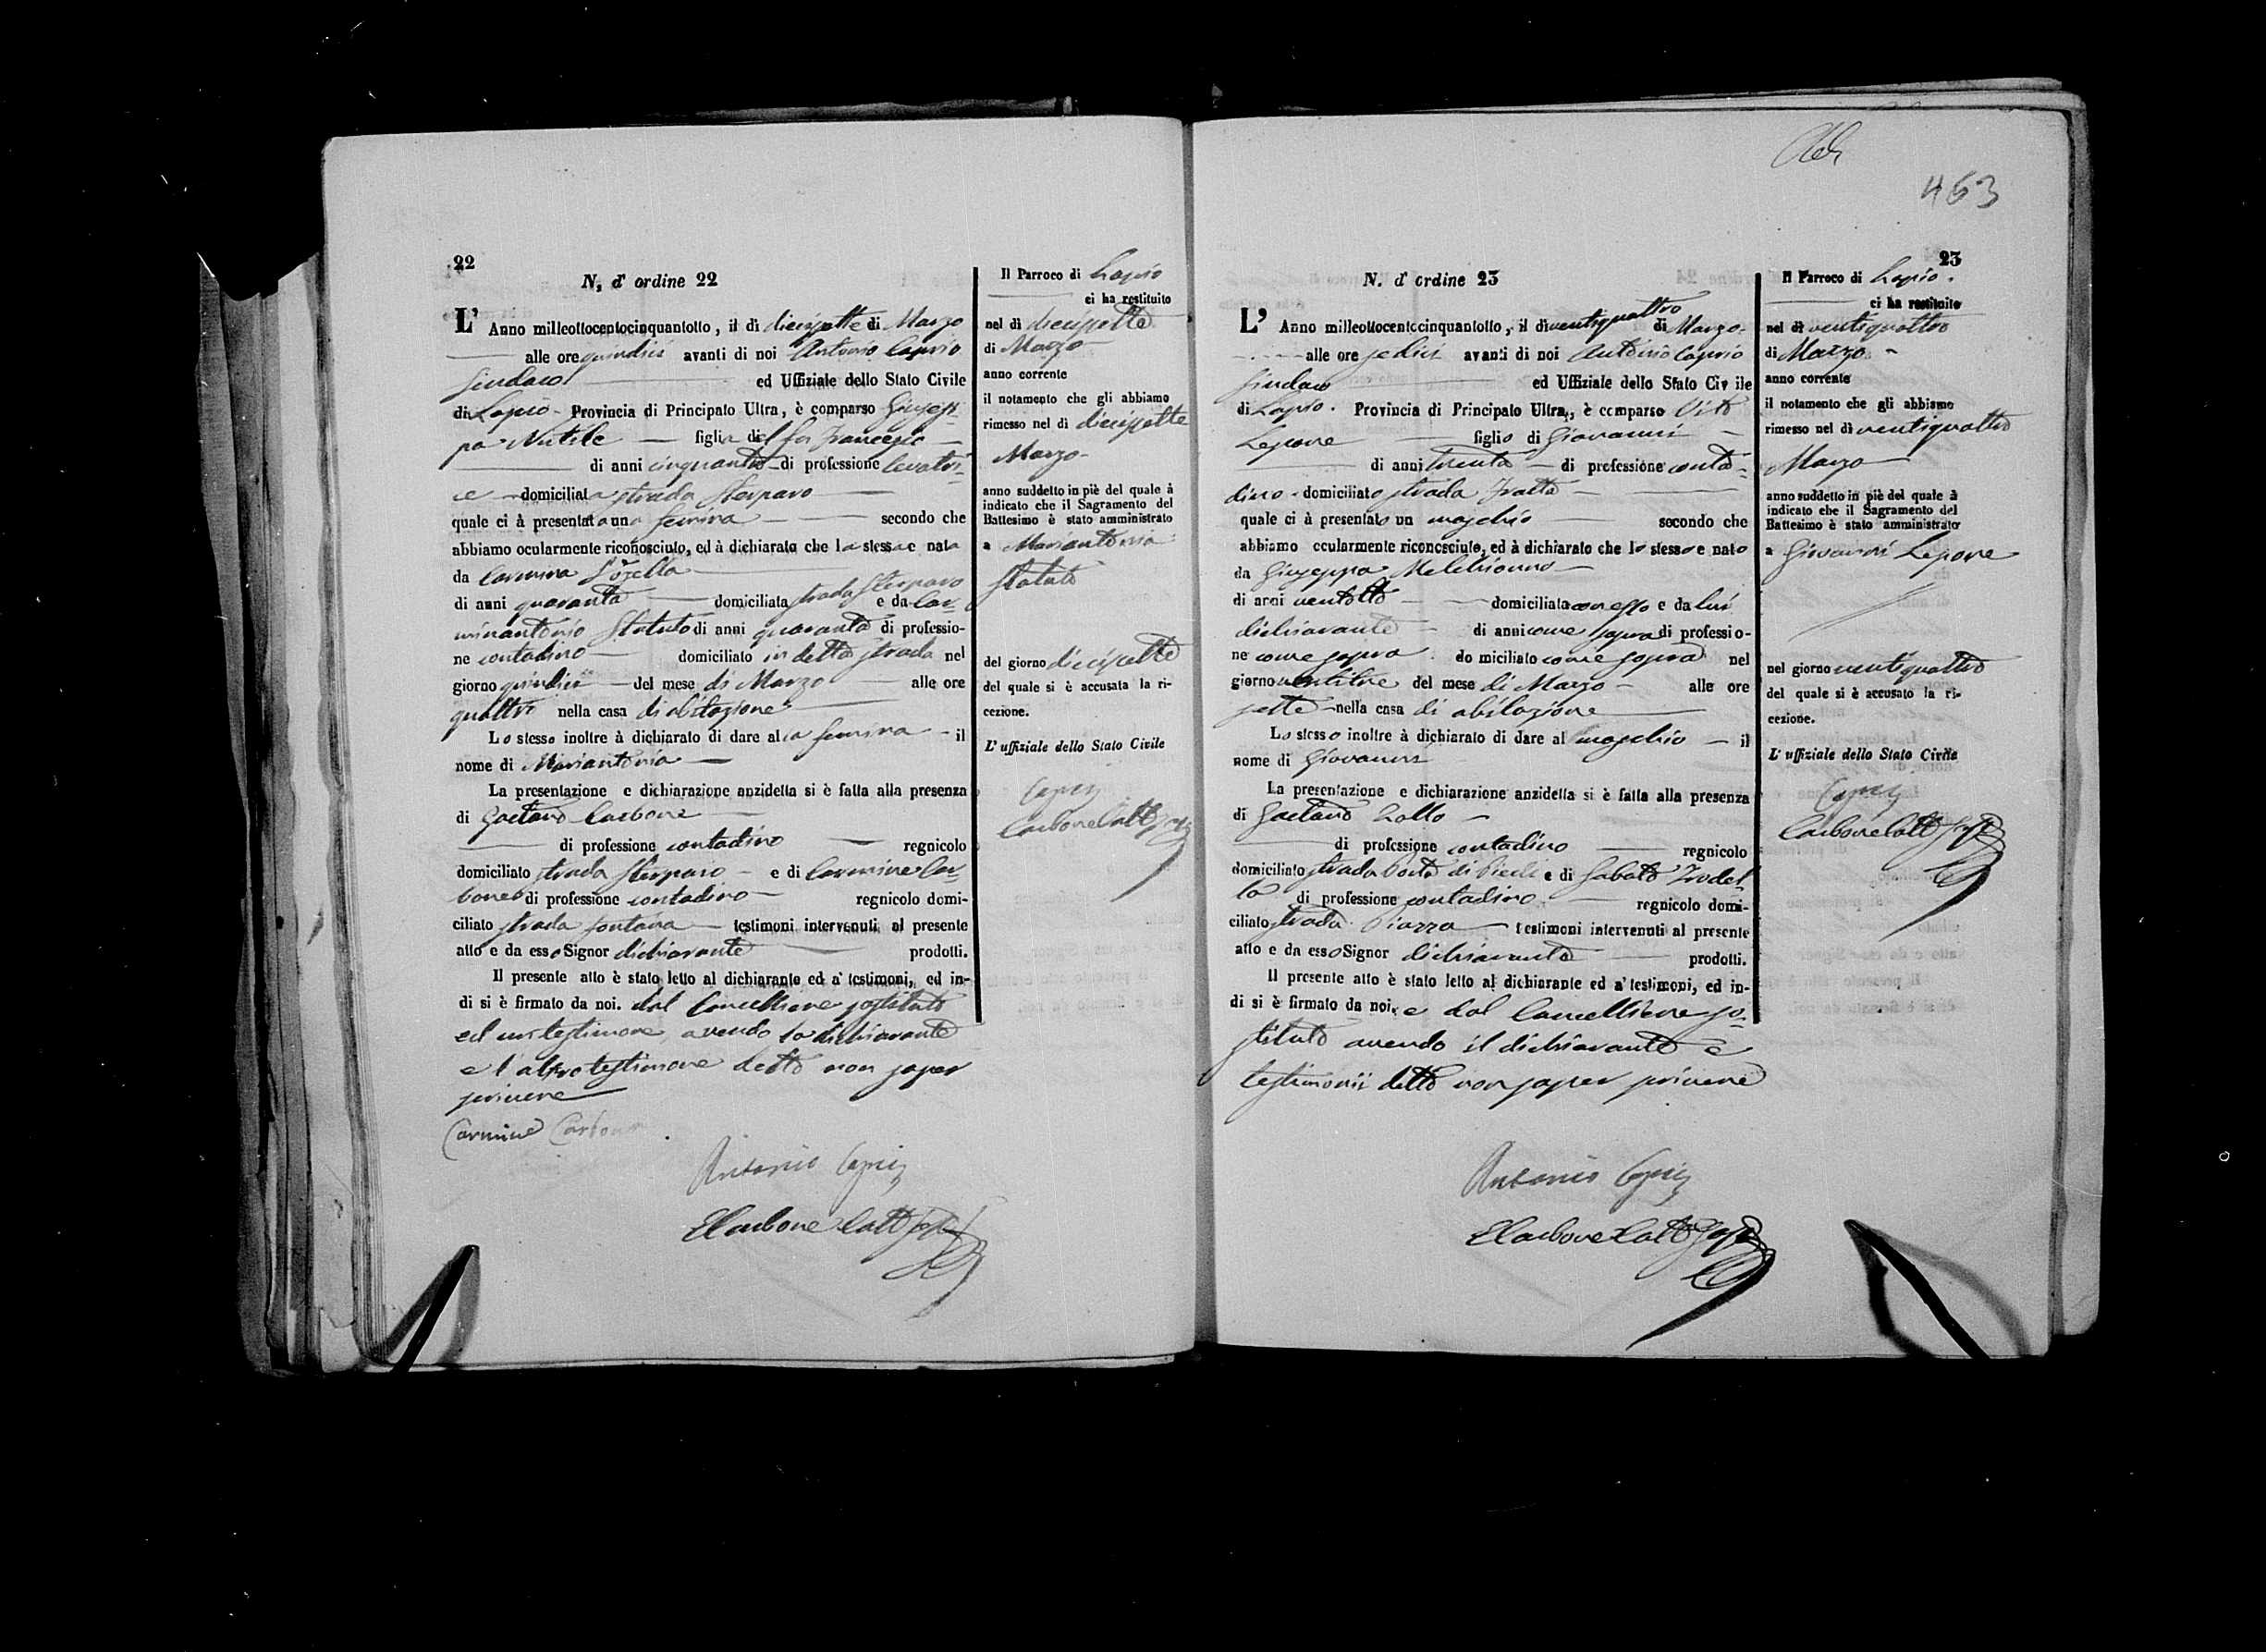 22
N. d' ordine 22
L' Anno milleottocentocinquantotto, il dì diecisette di Marzo
alle ore quindici avanti di noi Antonio Caprio
Sindaco ed Uffiziale dello Stato Civile
di Lapio Provincia di Principato Ultra, è comparso Giusep-
pa Nutile figlia del fu Francesco
di anni cinquanta di professione levatri-
ce domiciliata strada Sterparo
quale ci à presentato una femina secondo che
abbiamo ocularmente riconosciuto, ed à dichiarato che la stessa e nata
da Carmina
di anni quaranta domiciliata strada Sterparo e da Car-
minantonio Statuto di anni quaranta di professio-
ne contadino domiciliato in detta strada nel
giorno quindici del mese di Marzo alle ore
quattro nella casa di abitazione
Lo stesso inoltre à dichiarato di dare alla femina il
nome di Mariantonia
La presentazione e dichiarazione anzidetta si è fatta alla presenza
di Gaetano Carbone
di professione contadino regnicolo
domiciliato strada Sterparo e di Carmine Car-
bone di professione contadino regnicolo domi-
ciliato strada fontana testimoni intervenuti al presente
atto e da esso Signor dichiarante prodotti.
Il presente atto è stato letto al dichiarante ed a' testimoni, ed in-
di si è firmato da noi. dal Cancelliere sostituto
ed un testimone, avendo la dichiarante
e l'altro testimone detto non saper
scrivere
Carmine Carbone
Antonio Caprio
ECarbone Canc Sost
Il Parroco di Lapio
ci ha restituito
nel dì diecisette
di Marzo
anno corrente
il notamento che gli abbiamo
rimesso nel dì diecisette
Marzo
anno suddetto in piè del quale à
indicato che il Sagramento del
Battesimo è stato amministrato
a Mariantonia
Statuto
del giorno diecisette
del quale si è accusata la ri-
cezione.
L' uffiziale dello Stato Civile
Caprio
Carbone Canc Sost
463
23
N. d' ordine 23
L' Anno milleottocentocinquantotto, il dì ventiquattro di Marzo
alle ore sedici avanti di noi Antonio Caprio
Sindaco ed Uffiziale dello Stato Civile
di Lapio. Provincia di Principato Ultra, è comparso Vito
Lepore figlio di Giovanni
di anni trenta di professione conta-
dino domiciliato strada Tratta
quale ci à presentato un maschio secondo che
abbiamo ocularmente riconosciuto, ed à dichiarato che lo stesso e nato
da Giuseppa Melchionno
di anni ventotto domiciliata con esso e da lui
dichiarante di anni come sopra di professio-
ne come sopra domiciliato come sopra nel
giorno ventitre del mese di Marzo alle ore
sette nella casa di abitazione
Lo stesso inoltre à dichiarato di dare al maschio il
nome di Giovanni
La presentazione e dichiarazione anzidetta si è fatta alla presenza
di Gaetano Lallo
di professione contadino regnicolo
domiciliato strada Porta di Piedi e di Sabato Trodel-
la di professione contadino regnicolo domi-
ciliato strada Piazza testimoni intervenuti al presente
atto e da esso Signor dichiarante prodotti.
Il presente atto è stato letto al dichiarante ed a' testimoni, ed in-
di si è firmato da noi, e dal Cancelliere so-
stituto avendo il dichiarante e
testimonii detto non saper scrivere
Antonio Caprio
ECarbone Canc Sost
Il Parroco di Lapio.
ci ha restituito
nel dì ventiquattro
di Marzo
anno corrente
il notamento che gli abbiamo
rimesso nel dì ventiquattro
Marzo
anno suddetto in piè del quale à
indicato che il Sagramento del
Battesimo è stato amministrato
a Giovanni Lepore
nel giorno ventiquattro
del quale si è accusato la ri-
cezione.
L' uffiziale dello Stato Civile
Caprio
Carbone Canc Sost